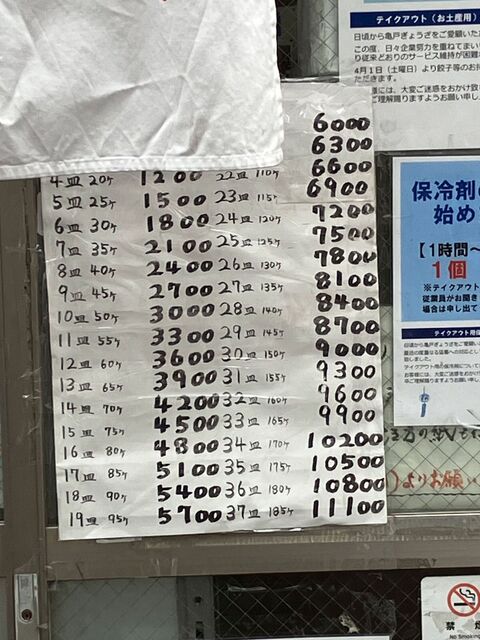 6000
6300
4皿 20ヶ 1200 22皿 110ヶ 6600
5皿 25ヶ 1500 23皿 115ヶ 6900
6皿 30ヶ 1800 24皿 120ヶ 7200
7皿 35ヶ 2100 25皿 125ヶ 7500
8皿 40ヶ 2400 26皿 130ヶ 7800
9皿 45ヶ 2700 27皿 135ヶ 8100
10皿 50ヶ 3000 28皿 140ヶ 8400
11皿 55ヶ 3300 29皿 145ヶ 8700
12皿 60ヶ 3600 30皿 150ヶ 9000
13皿 65ヶ 3900 31皿 155ヶ 9300
14皿 70ヶ 4200 32皿 160ヶ 9600
15皿 75ヶ 4500 33皿 165ヶ 9900
16皿 80ヶ 4800 34皿 170ヶ 10200
17皿 85ヶ 5100 35皿 175ヶ 10500
18皿 90ヶ 5400 36皿 180ヶ 10800
19皿 95ヶ 5700 37皿 185ヶ 11100
テイクアウト（お土産用）
日頃から亀戸ぎょうざをご愛顧いただ
この度、日々企業努力を重ねてまい
り従来どおりのサービス維持が困難
4月1日（土曜日）より餃子等のお持
ただきます。
様には、大変ご迷惑をおかけ致
ご理解賜りますようお願い申し
保冷剤の
始め
【1時間〜
1個
※テイクアウト
従業員がお聞き
場合は申し出て
テイクアウト用保
よりお願い
禁
No Smoking